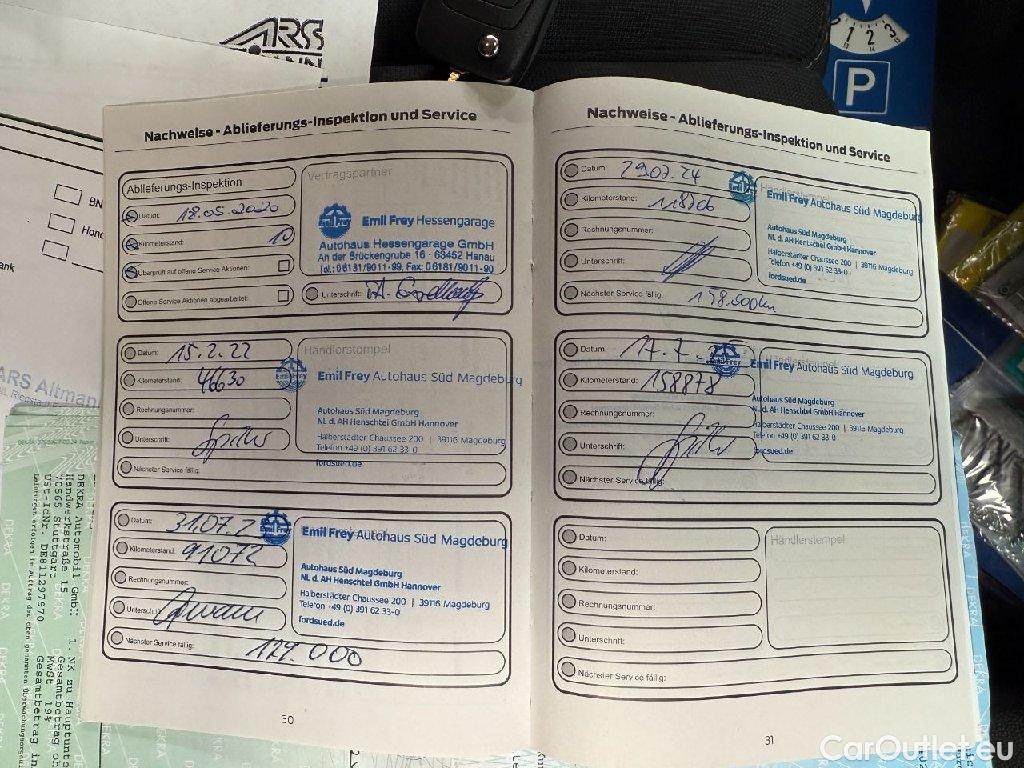 ARS
1 2 3
P
Nachweise - Ablieferungs-Inspektion und Service
Ablieferungs-Inspektion
Datum: 18.05.2020
Kilometerstand: 10
Überprüft auf offene Service Aktionen:
Offene Service Aktionen abgearbeitet:
Vertragspartner
Emil Frey Hessengarage
Autohaus Hessengarage GmbH
An der Brückengrube 16 · 63452 Hanau
Tel.: 06181/9011-99, Fax: 06181/9011-90
Unterschrift:
Datum: 15.2.22
Kilometerstand: 46630
Rechnungsnummer:
Unterschrift:
Nächster Service fällig:
Händlerstempel
Emil Frey Autohaus Süd Magdeburg
Autohaus Süd Magdeburg
NL d. AH Henschtel GmbH Hannover
Halberstädter Chaussee 200 | 39116 Magdeburg
Telefon +49 (0) 391 62 33-0
fordsued.de
Datum: 31.07.2
Kilometerstand: 91072
Rechnungsnummer:
Unterschrift:
Nächster Service fällig: 129.000
Emil Frey Autohaus Süd Magdeburg
Autohaus Süd Magdeburg
NL d. AH Henschtel GmbH Hannover
Halberstädter Chaussee 200 | 39116 Magdeburg
Telefon +49 (0) 391 62 33-0
fordsued.de
30
Nachweise - Ablieferungs-Inspektion und Service
Datum: 29.07.24
Kilometerstand:
Rechnungsnummer:
Unterschrift:
Nächster Service fällig: 158.000km
Händlerstempel
Emil Frey Autohaus Süd Magdeburg
Autohaus Süd Magdeburg
NL d. AH Henschtel GmbH Hannover
Halberstädter Chaussee 200 | 39116 Magdeburg
Telefon +49 (0) 391 62 33-0
fordsued.de
Datum: 17.7.
Kilometerstand: 158878
Rechnungsnummer:
Unterschrift:
Nächster Service fällig:
Händlerstempel
Emil Frey Autohaus Süd Magdeburg
Autohaus Süd Magdeburg
NL d. AH Henschtel GmbH Hannover
Halberstädter Chaussee 200 | 39116 Magdeburg
Telefon +49 (0) 391 62 33-0
fordsued.de
Datum:
Kilometerstand:
Rechnungsnummer:
Unterschrift:
Nächster Service fällig:
Händlerstempel
31
ARS Altmann
DEKRA Automobil GmbH
Handwerkstraße 15
70565 Stuttgart
Ust-IdNr. DE811297970
DEKRA
CarOutlet.eu